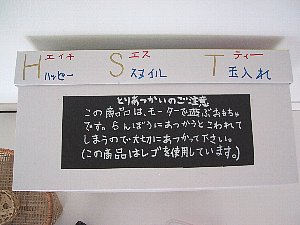 エイチ エス ティー
H S T
ハッピー スマイル 玉入れ
とりあつかいのご注意
この商品は、モーターで遊ぶおもちゃ
です。らんぼうにあつかうとこわれて
しまうので大切にあつかって下さい。
(この商品はレゴを使用しています。)